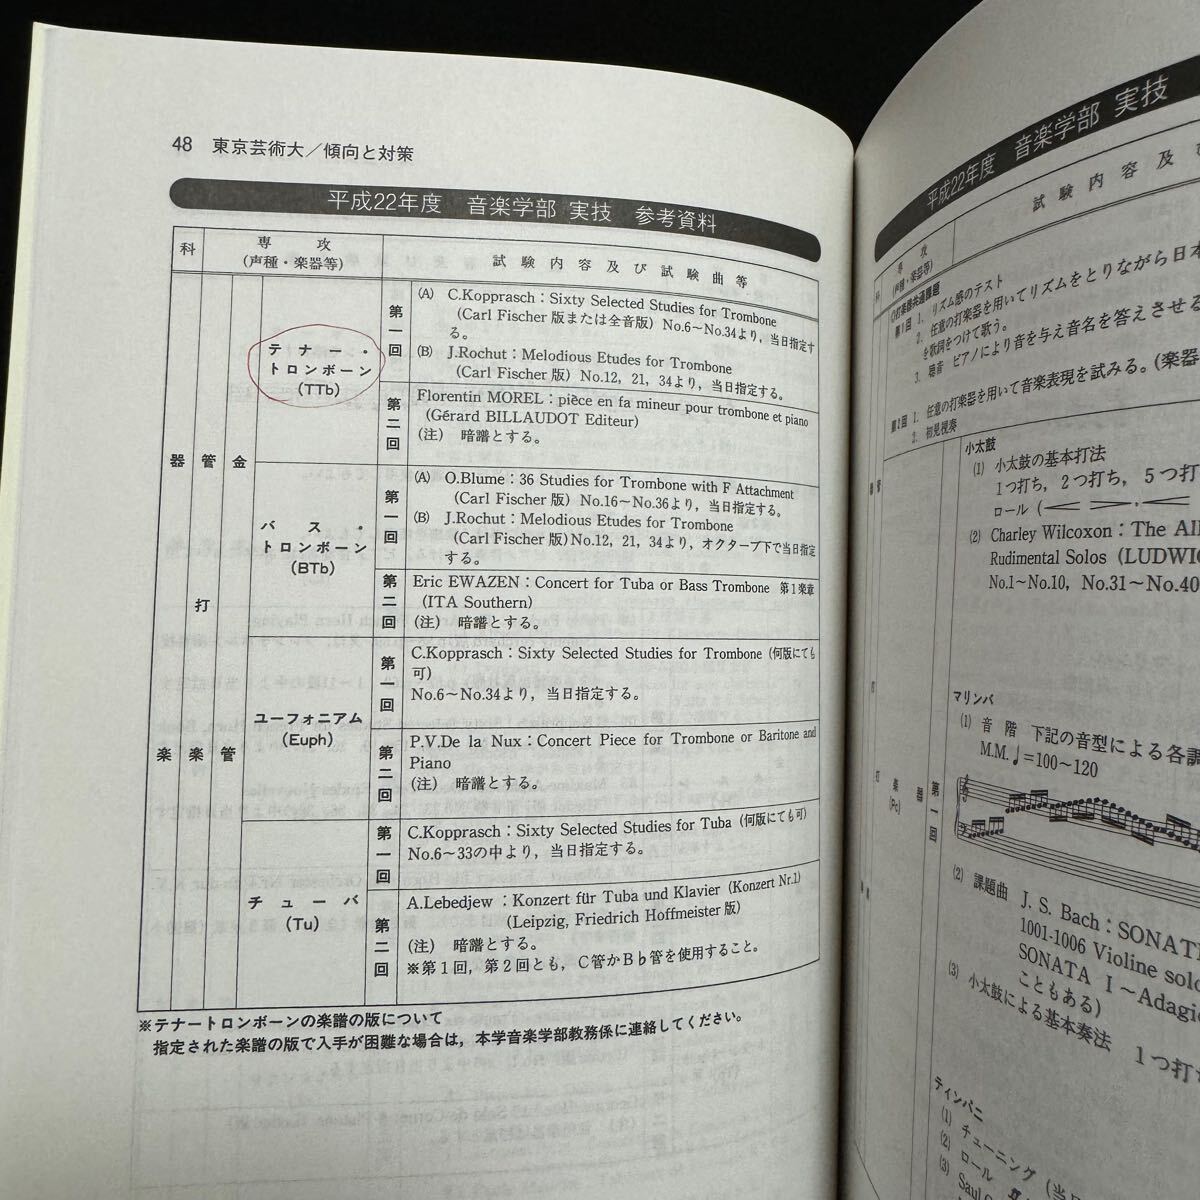 48 東京芸術大／傾向と対策
平成22年度 音楽学部 実技 参考資料
科
専攻
(声種・楽器等)
試験内容及び試験曲等
器楽
管打楽
金管
テナー・
トロンボーン
(TTb)
第一回
(A) C.Kopprasch：Sixty Selected Studies for Trombone
(Carl Fischer 版または全音版) No.6〜No.34より，当日指定す
る。
(B) J.Rochut：Melodious Etudes for Trombone
(Carl Fischer 版) No.12，21，34より，当日指定する。
第二回
Florentin MOREL：pièce en fa mineur pour trombone et piano
(Gérard BILLAUDOT Editeur)
(注) 暗譜とする。
バス・
トロンボーン
(BTb)
第一回
(A) O.Blume：36 Studies for Trombone with F Attachment
(Carl Fischer 版) No.16〜No.36より，当日指定する。
(B) J.Rochut：Melodious Etudes for Trombone
(Carl Fischer 版) No.12，21，34より，オクターブ下で当日指定
する。
第二回
Eric EWAZEN：Concert for Tuba or Bass Trombone 第1楽章
(ITA Southern)
(注) 暗譜とする。
ユーフォニアム
(Euph)
第一回
C.Kopprasch：Sixty Selected Studies for Trombone (何版にても
可)
No.6〜No.34より，当日指定する。
第二回
P.V.De la Nux：Concert Piece for Trombone or Baritone and
Piano
(注) 暗譜とする。
チューバ
(Tu)
第一回
C.Kopprasch：Sixty Selected Studies for Tuba (何版にても可)
No.6〜33の中より，当日指定する。
第二回
A.Lebedjew：Konzert für Tuba und Klavier (Konzert Nr.1)
(Leipzig, Friedrich Hoffmeister版)
(注) 暗譜とする。
※第1回，第2回とも，C管かB♭管を使用すること。
※テナートロンボーンの楽譜の版について
指定された楽譜の版で入手が困難な場合は，本学音楽学部教務係に連絡してください。
平成22年度 音楽学部 実技
科
専攻
(声種・楽器等)
試験内容及び
◎打楽器共通課題
第1回 1. リズム感のテスト
2. 任意の打楽器を用いてリズムをとりながら日本
を歌詞をつけて歌う。
3. 聴音 ピアノにより音を与え音名を答えさせる
第2回 1. 任意の打楽器を用いて音楽表現を試みる。(楽器
2. 初見視奏
打楽器
(Pc)
第一回
小太鼓
(1) 小太鼓の基本打法
1つ打ち，2つ打ち，5つ打
ロール
(2) Charley Wilcoxon：The All
Rudimental Solos (LUDWIG
No.1〜No.10，No.31〜No.40
マリンバ
(1) 音階 下記の音型による各調
M.M.♩=100〜120
(2) 課題曲 J. S. Bach：SONAT
1001-1006 Violine solo
SONATA Ⅰ〜Adagio
こともある)
(3) 小太鼓による基本奏法 1つ打ち
ティンパニ
(1) チューニング (当
(2) ロール
(3) Saul